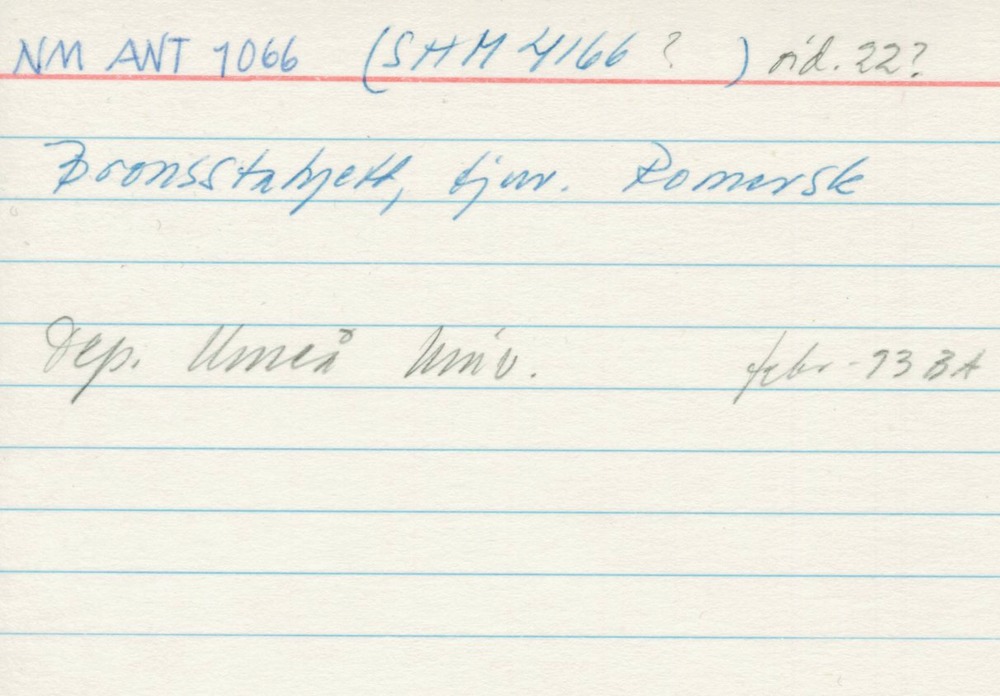 NM ANT 1066 (SHM 4166 ? ) 22?
Bronsstatyett, djur. Romersk
Dep. Umeå Univ. febr -93 BA